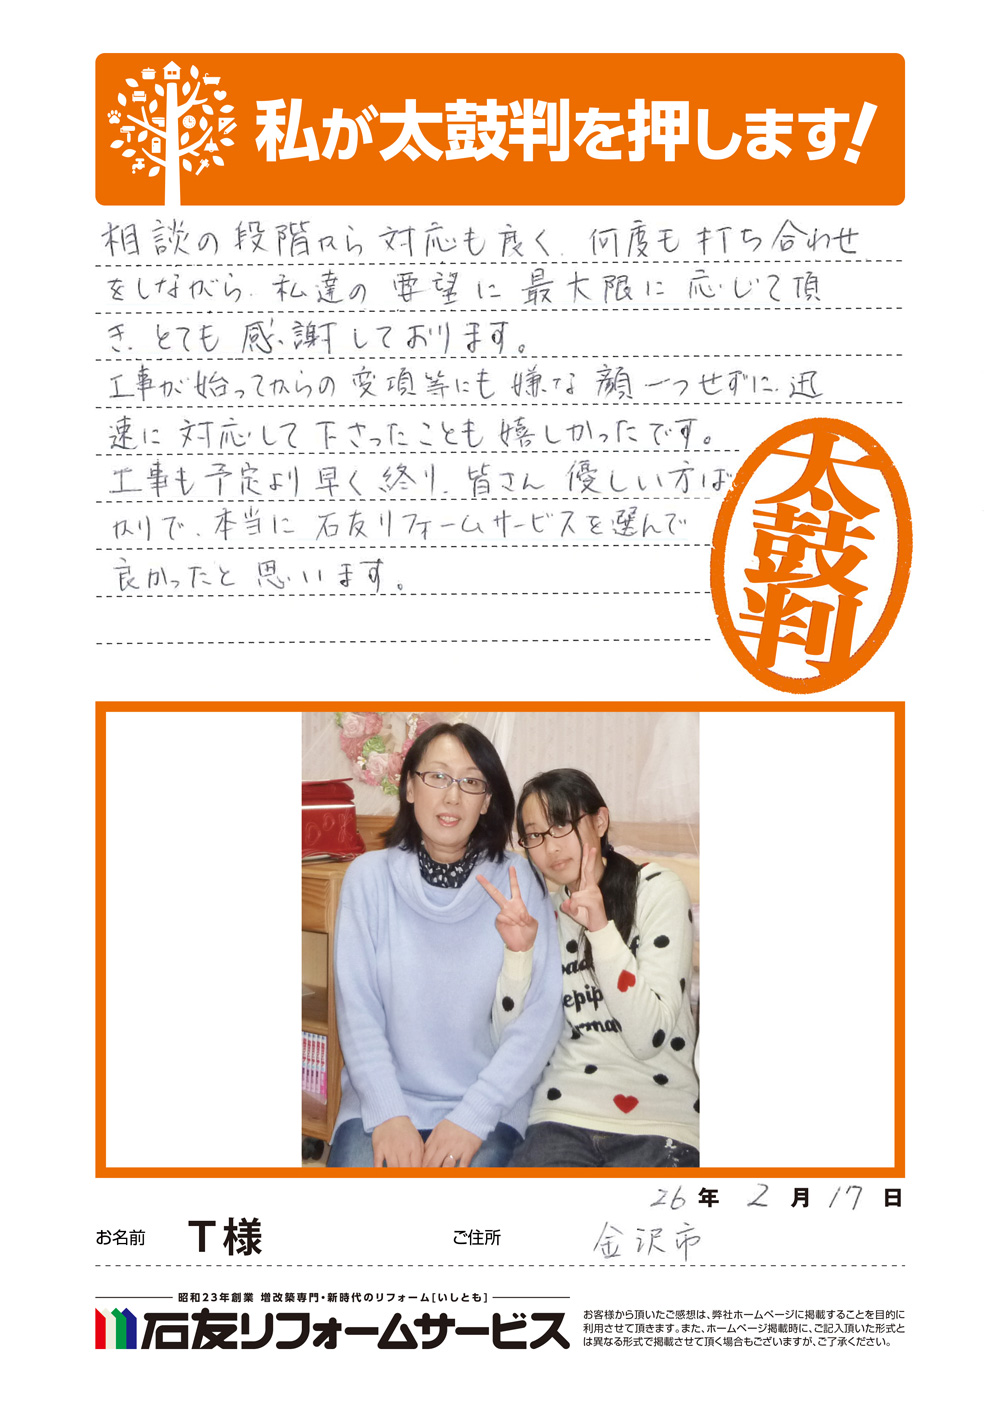 私が太鼓判を押します!
相談の段階から対応も良く、何度も打ち合わせ
をしながら、私達の要望に最大限に応じて頂
き、とても感謝しております。
工事が始ってからの変項等にも嫌な顔一つせずに、迅
速に対応して下さったことも嬉しかったです。
工事も予定より早く終り、皆さん優しい方ば
かりで、本当に石友リフォームサービスを選んで
良かったと思います。
太鼓判
26年 2月 17日
お名前 T様 ご住所 金沢市
昭和23年創業 増改築専門・新時代のリフォーム[いしとも]
石友リフォームサービス
お客様から頂いたご感想は、弊社ホームページに掲載することを目的に
利用させて頂きます。また、ホームページ掲載時に、ご記入頂いた形式と
は異なる形式で掲載させて頂く場合もございますが、ご了承ください。